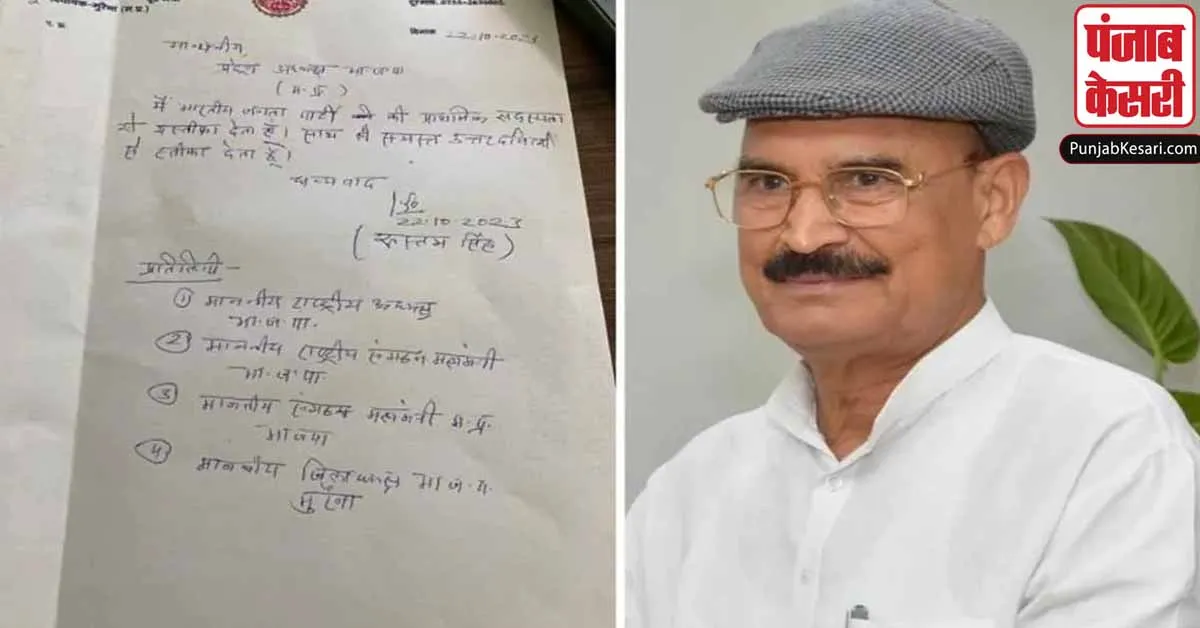 दिनांक 22.10.2023
माननीय,
प्रदेश अध्यक्ष भाजपा
(म.प्र.)
मैं भारतीय जनता पार्टी की प्राथमिक सदस्यता
से इस्तीफा देता हूँ। साथ ही समस्त उत्तरदायित्वों
से स्तीफा देता हूँ।
धन्यवाद
22.10.2023
(रूस्तम सिंह)
प्रतिलिपी -
① माननीय राष्ट्रीय अध्यक्ष
भा.ज.पा.
② माननीय राष्ट्रीय संगठन महामंत्री
भा.ज.पा.
③ माननीय संगठन महामंत्री म.प्र.
भाजपा
④ माननीय जिलाध्यक्ष भा.ज.पा.
मुरैना
पंजाब
केसरी
PunjabKesari.com